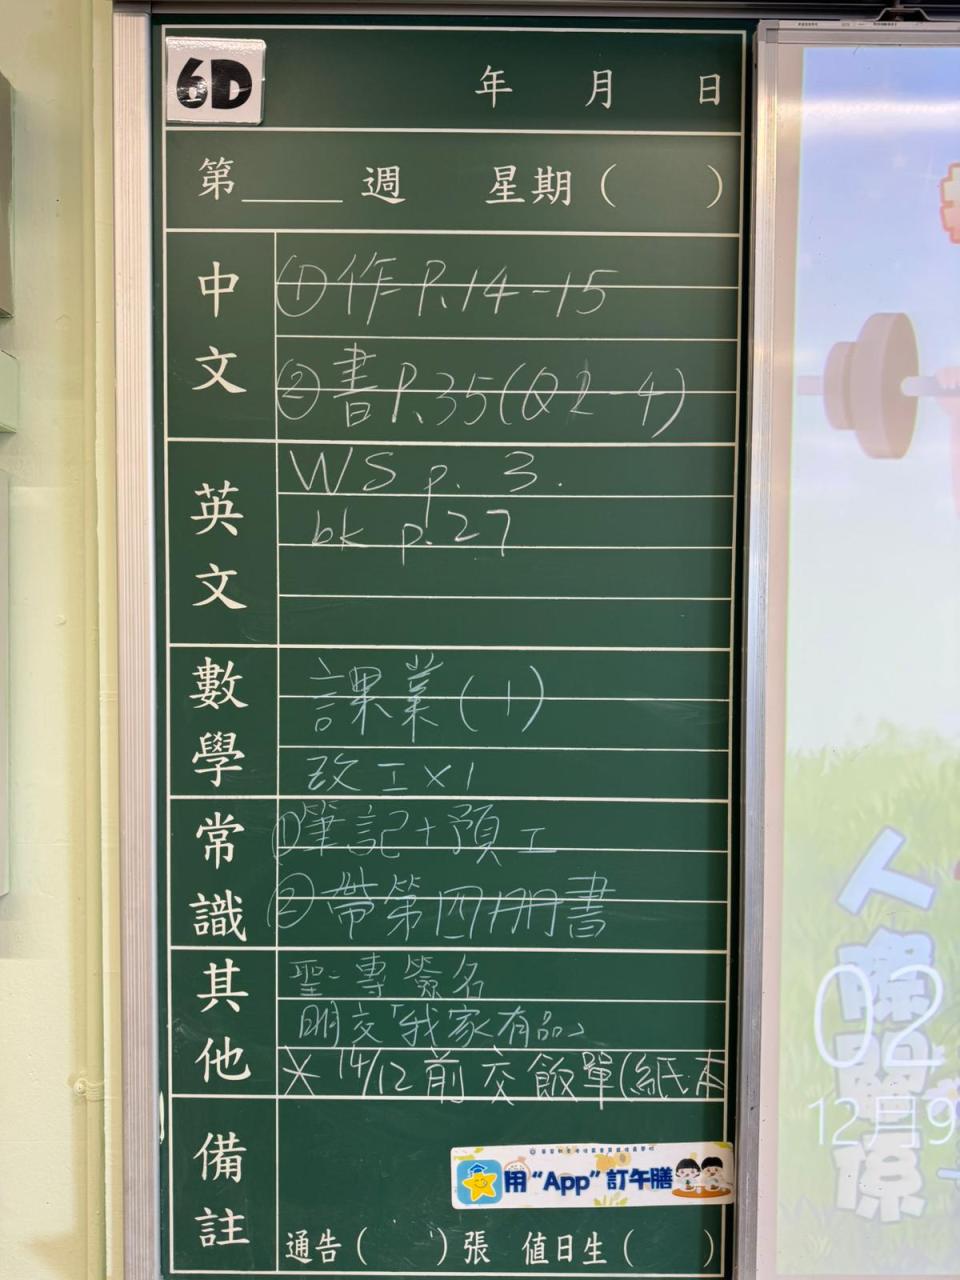 6D
年 月 日
第____週 星期( )
中文
①作P.14-15
②書P.35(Q2-4)
英文
WS p. 3.
bk p.27
數學
課業(1)
改工×1
常識
①筆記+預工
②帶第四冊書
其他
聖專簽名
明交「我家有品」
※14/12前交飯單(紙本
備註
用“App”訂午膳
通告( )張 值日生( )
人際關係
02
12月9